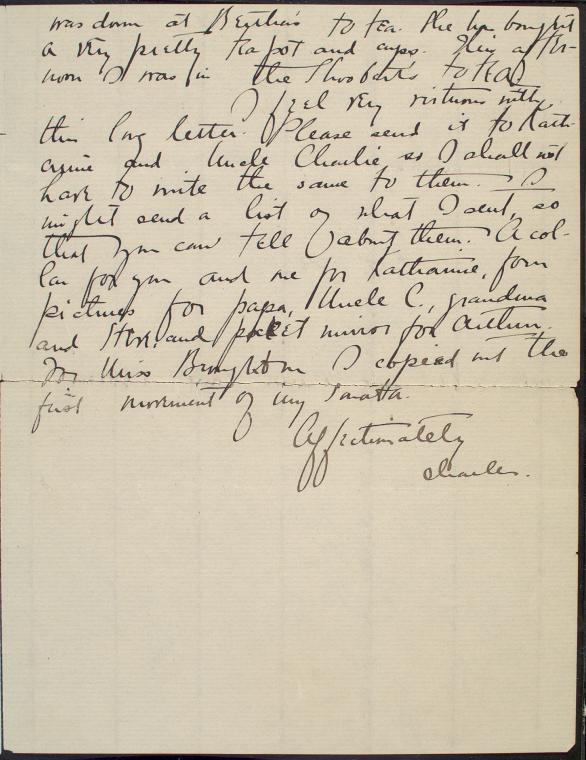 was down at Bertha's to tea. She has bought
a very pretty tea pot and cups. This after-
noon I was in the Shoobert's to tea.
I feel very virtuous with
this long letter. Please send it to Kath-
arine and Uncle Charlie, so I shall not
have to write the same to them. I
might send a list of what I sent, so
that you can tell about them. A col-
lar for you and one for Katharine, four
pictures for papa, Uncle C., grandma
and and pocket mirror for Arthur.
For Miss I copied out the
first movement of my Sonata.
Affectionately
Charles.